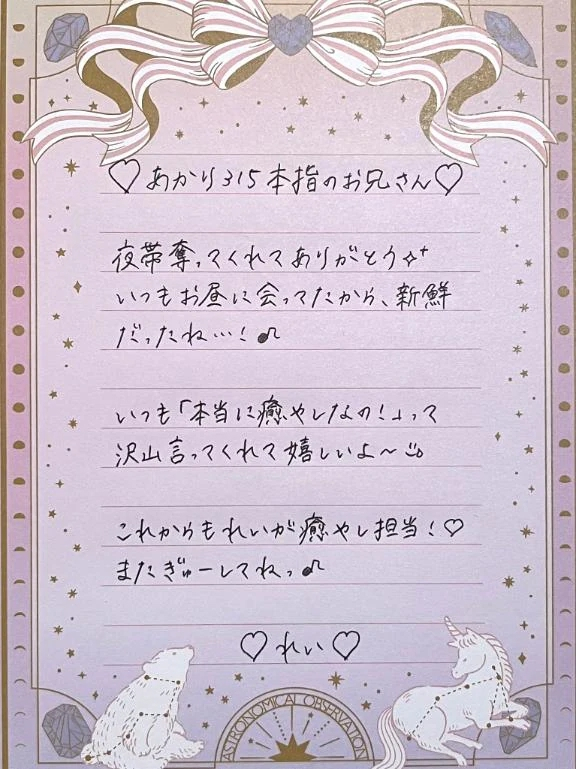 ♡あかり315本指のお兄さん♡
夜帯奪ってくれてありがとう✧⁺
いつもお昼に会ってたから、新鮮
だったね…!♪
いつも「本当に癒やしなの!」って
沢山言ってくれて嬉しいよ〜
これからもれいが癒やし担当!♡
またぎゅーしてねっ♪
♡れい♡
ASTRONOMICAL OBSERVATION